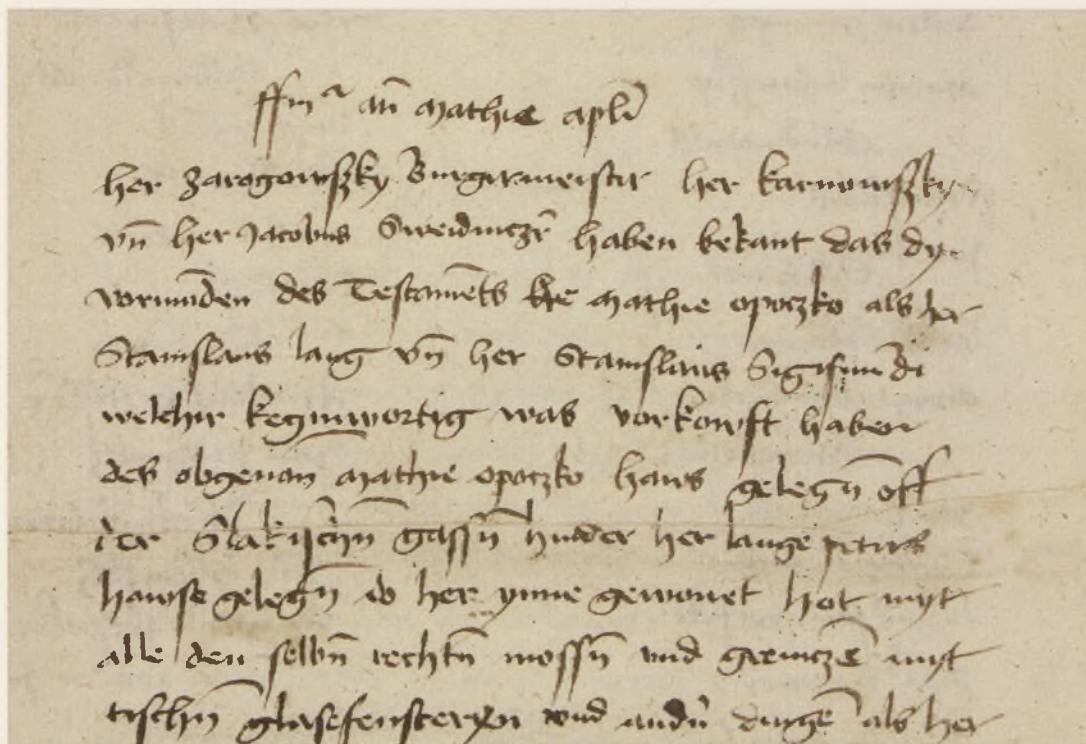 ffīa añ Mathie apli
her Zarogowszky Burgirmeister her Karnowszky
vñ her Jacobus Sweidniczr̄ haben bekant das dy
vormūden des Testamēts Mathie opoczko als her
Stanislaus lang vñ her Stanislaus Sigismūdi
welchir keginwortig was vorkowft haben
des obgenan Mathie opoczko haws gelegñ off
der Slakischñ gassñ hinder her lange petirs
hawse gelegñ do her ynne gewonet hot myt
alle den selbñ rechtñ mossñ vnd grenicze myt
tischñ glasefensterñ vnd andñ dingē als her